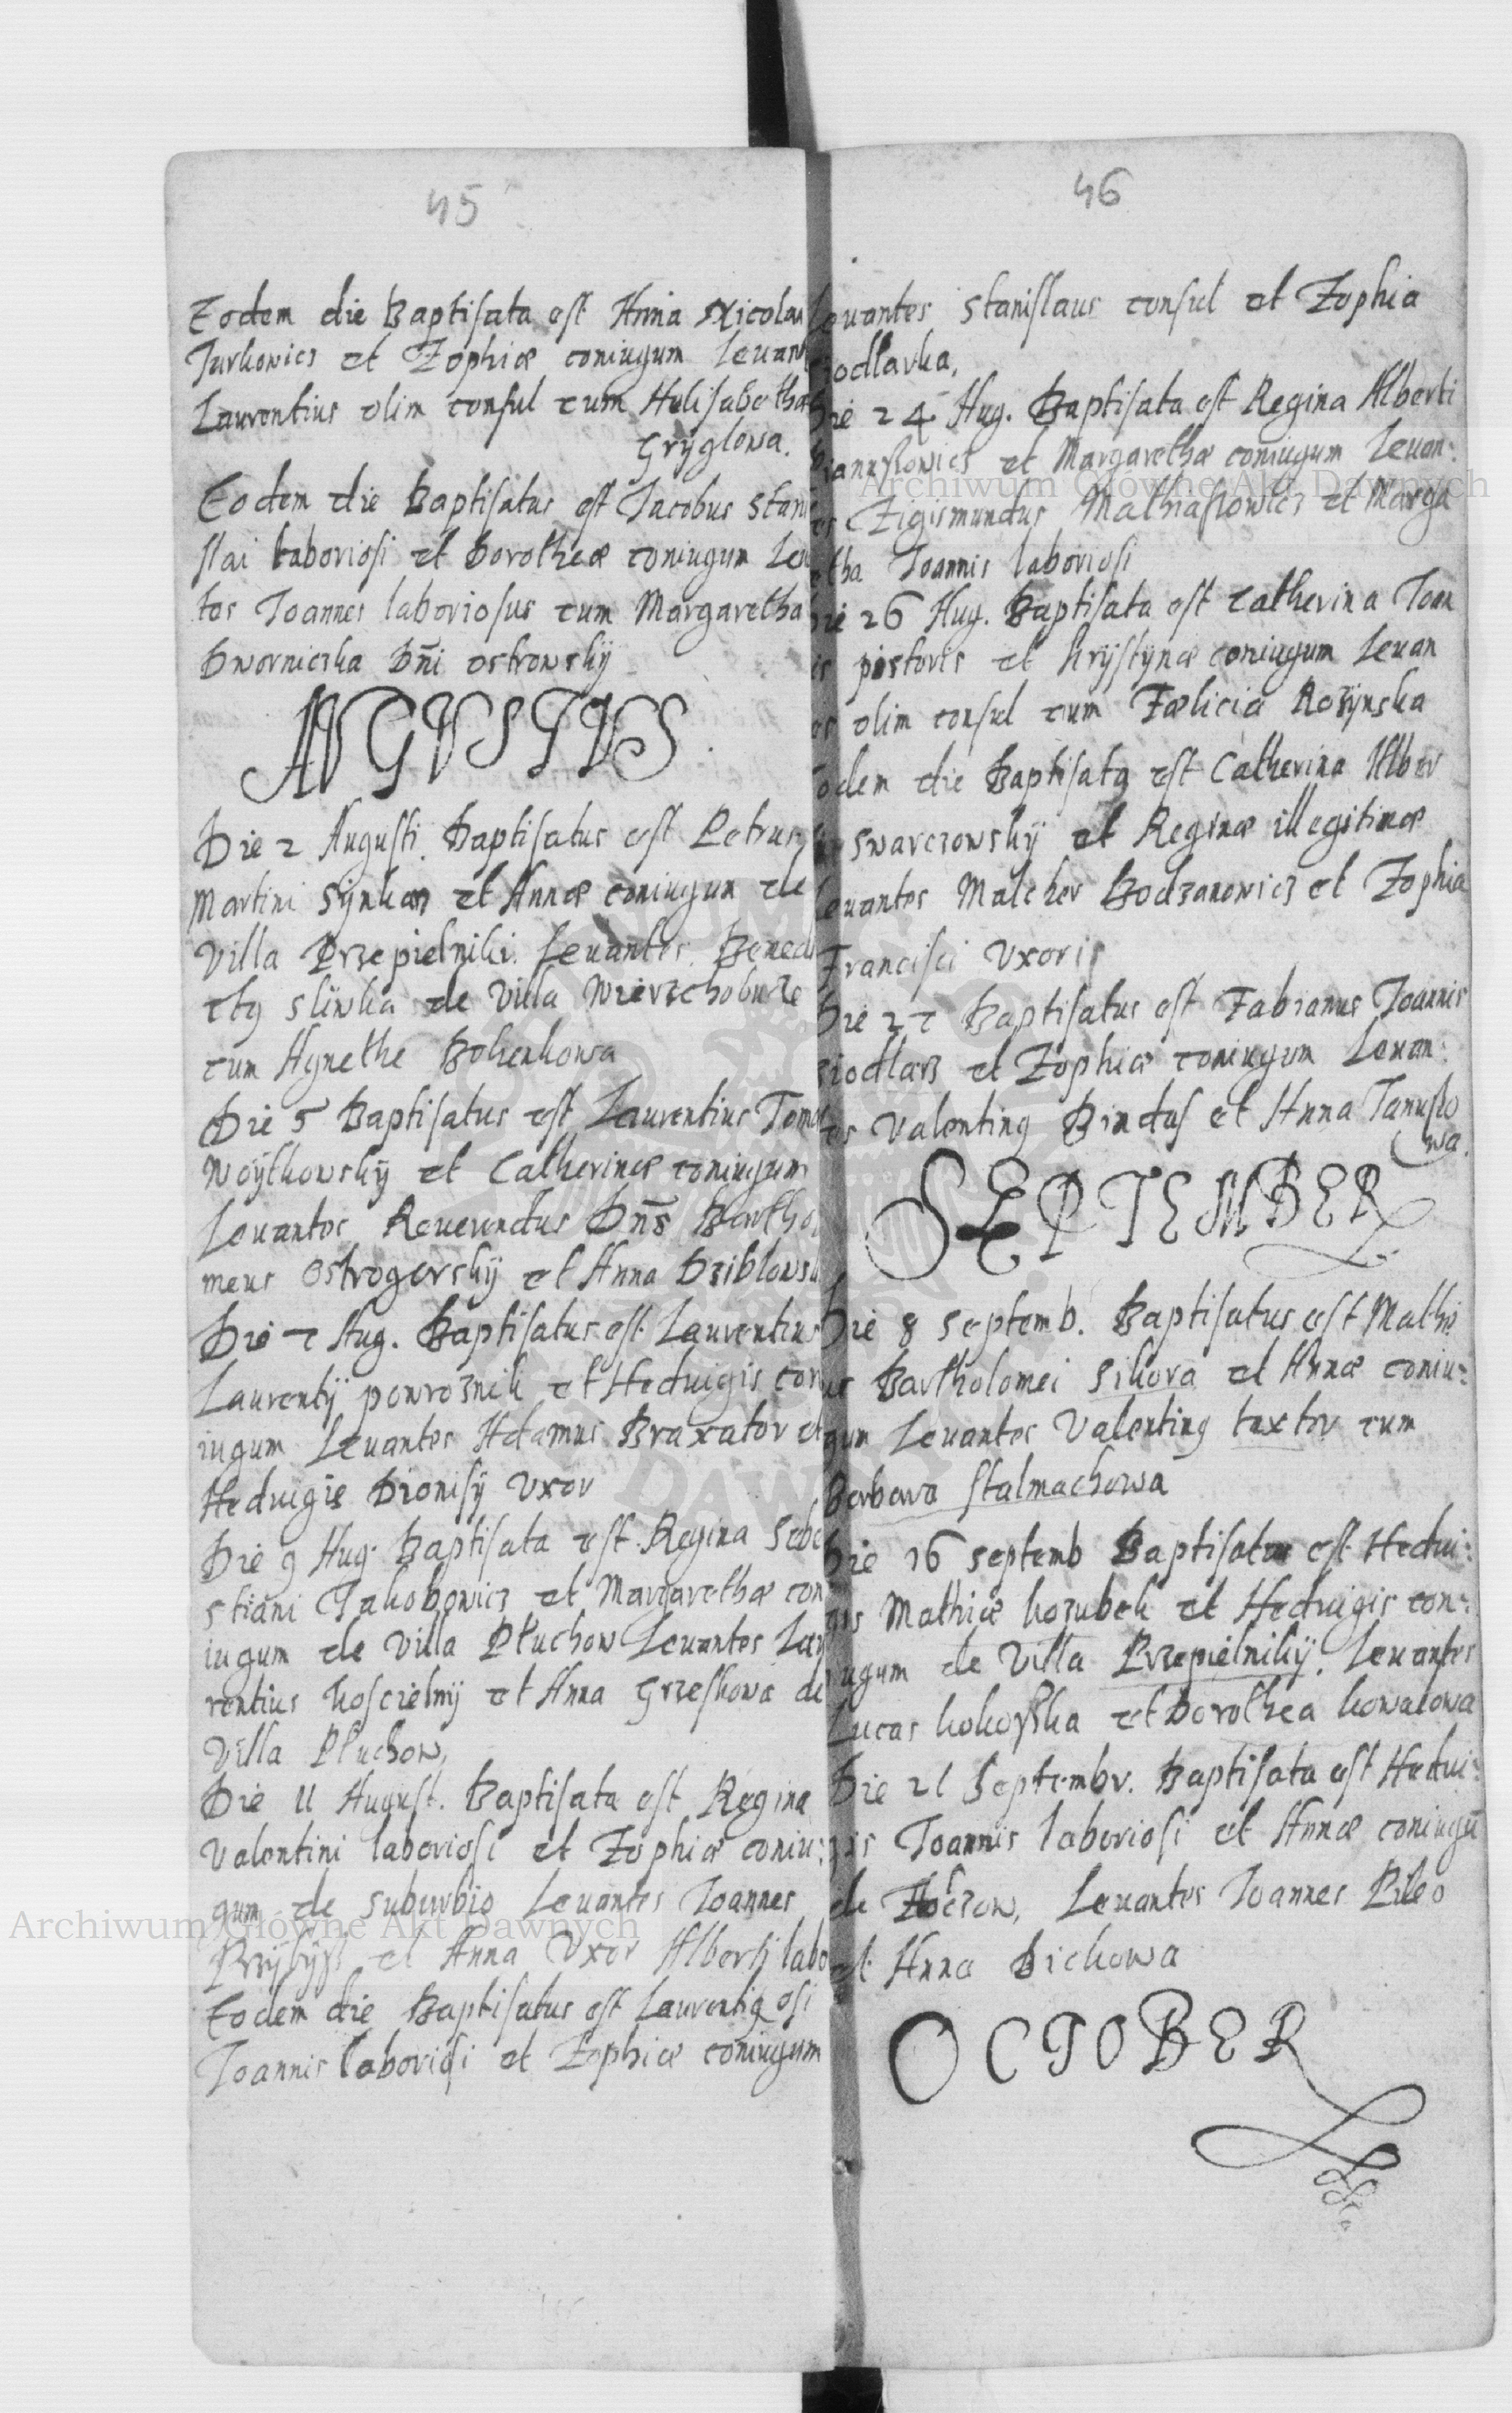 45
Eodem die Baptisata est Anna Nicolai
Jurkowicz et Zophiæ coniugum Levant
Laurentius olim consul cum Helisabetha
Gryglowa.
Eodem die Baptisatus est Jacobus Stani
slai laboriosi et Dorotheæ coniugum Leu
tes Joannes laboriosus cum Margaretha
Dworniczka Dni Ostrowsky
AVGVSTVS
Die 2 Augusti Baptisatus est Petrus
Martini et Annæ coniugum de
Villa Przepielniki. Levantes Bened
ctq Sliwka de Villa Wierzchoburze
cum Agnethe Bohenkowa
Die 5 Baptisatus est Laurentius Tomæ
Woytkowsky et Catherinæ coniugum
Levantes Reverendus Dns Bartho
meus Ostrogorsky et Anna Dziblowsk
Die 7 Aug. Baptisatus est Laurentius
Laurentij powroznik et Hedvigis con
iugum Levantes Adamus Braxator et
Hedvigis Dionisij Vxor
Die 9 Aug. Baptisata est Regina Seba
stiani Jakobowicz et Margarethæ con
iugum de Villa Pluchow Levantes Lau
rentius koscielny et Anna Grzeskowa de
Villa Pluchow,
Die 11 August. Baptisata est Regina
Valentini laboriosi et Zophiæ coniu:
gum de suburbio Levantes Joannes
Przybysz et Anna Vxor Albertij labo
Eodem die Baptisatus est Laurentiq osi
Joannis laboriosi et Zophiæ coniugum
46
Levantes Stanislaus consul et Zophia
siodlarka,
Die 24 Aug. Baptisata est Regina Alberti
et Margarethæ coniugum Levan:
es Zigismundus Mathiaszowicz et Marga
etha Joannis laboriosi
Die 26 Aug. Baptisata est Catherina Joan
is pistoris et Krystynæ coniugum Levan
es olim consul cum Fælicia Rozynska
Eodem die Baptisata est Catherina Alber
ti Swarczowsky et Reginæ illegitimæ
Levantes Malcher Bodzanowicz et Zophia
Francisci Vxoris
Die 27 Baptisatus est Fabianus Joannis
siodlarz et Zophiæ coniugum Levan:
tes Valentinq Bindas et Anna Januszo
wa.
SEPTEMBER
Die 8 Septemb. Baptisatus est Mathe
us Bartholomei Sikora et Annæ coniu:
gum Levantes Valentinq textor cum
Barbara stalmachowa
Die 16 Septemb Baptisata est Hedui:
gis Mathiæ kozubek et Hedvigis con:
iugum de Villa Przepielniky. Levantes
Lucas kokoszka et Dorothea kowalowa
Die 21 Septembr. Baptisata est Hedui:
gis Joannis laboriosi et Annæ coniugũ
de Zloczow, Levantes Joannes Pileo
et Anna Dichowa
OCTOBER
Archiwum Główne Akt Dawnych
Archiwum Główne Akt Dawnych